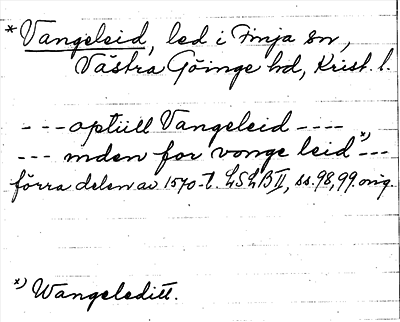 *Vangeleid, led i Finja sn,
Västra Göinge hd, Krist. l.
---optill Vangeleid----
---mden for vonge leid*)---
förra delen av 1570-t. LSLB II, ss. 98, 99. orig.
*) Wangeleditt.